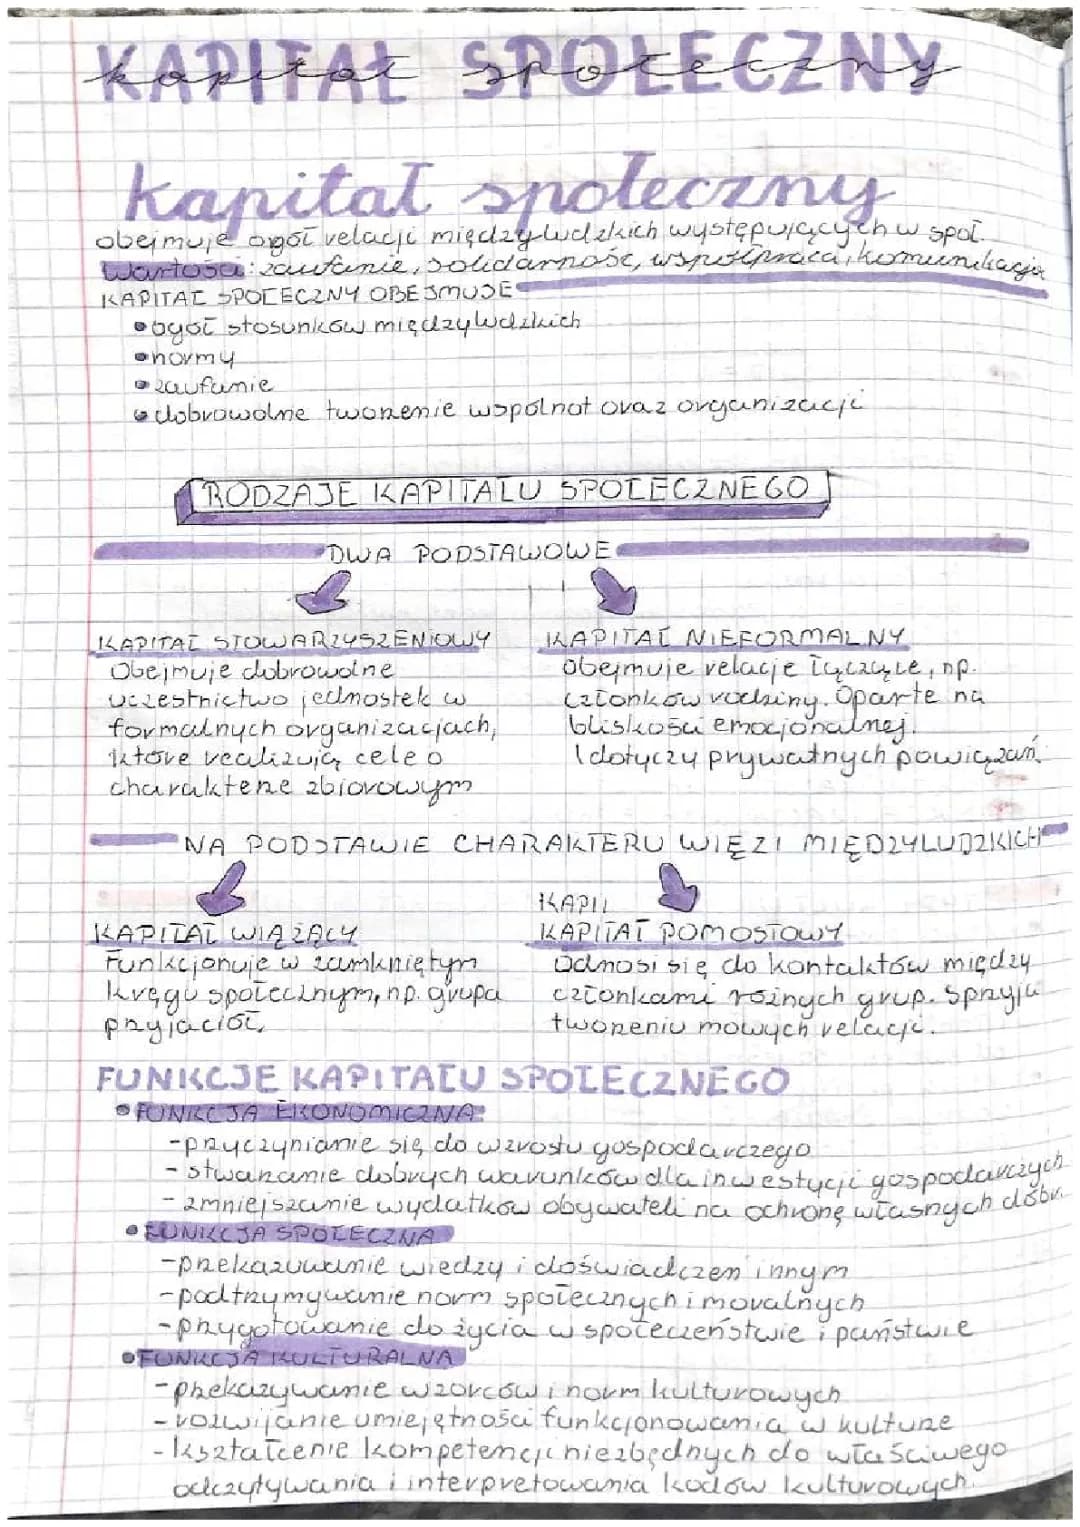 KAPITAŁ SPOŁECZNY
kapitał społeczny
kapitał społeczny
obejmuje ogół relacji międzyludzkich występujących w społ.
Wartości: zaufanie, solidarność, współpraca, komunikacja
KAPITAŁ SPOŁECZNY OBEJMUJE
•ogół stosunków międzyludzkich
•normy
•zaufanie
•dobrowolne tworzenie wspólnot oraz organizacji
RODZAJE KAPITAŁU SPOŁECZNEGO
DWA PODSTAWOWE
KAPITAŁ STOWARZYSZENIOWY
Obejmuje dobrowolne
uczestnictwo jednostek w
formalnych organizacjach,
które realizują cele o
charakterze zbiorowym
KAPITAŁ NIEFORMALNY
Obejmuje relacje łączące, np.
członków rodziny. Oparte na
bliskości emocjonalnej.
I dotyczy prywatnych powiązań.
NA PODSTAWIE CHARAKTERU WIĘZI MIĘDZYLUDZKICH
KAPITAŁ WIĄŻĄCY
Funkcjonuje w zamkniętym
kręgu społecznym, np. grupa
przyjaciół,
KAPI
KAPITAŁ POMOSTOWY
Odnosi się do kontaktów między
członkami różnych grup. Sprzyja
tworzeniu nowych relacji.
FUNKCJE KAPITAŁU SPOŁECZNEGO
•FUNKCJA EKONOMICZNA:
-przyczynianie się do wzrostu gospodarczego
-stwarzanie dobrych warunków dla inwestycji gospodarczych
-zmniejszanie wydatków obywateli na ochronę własnych dóbr
•FUNKCJA SPOŁECZNA
-przekazuwanie wiedzy i doświadczeń innym
-podtrzymywanie norm społecznych i moralnych
-przygotowanie do życia w społeczeństwie i państwie
•FUNKCJA KULTURALNA
-przekazywanie wzorców i norm kulturowych
-rozwijanie umiejętności funkcjonowania w kulturze
-kształcenie kompetencji niezbędnych do właściwego
odczytywania i interpretowania kodów kulturowych.